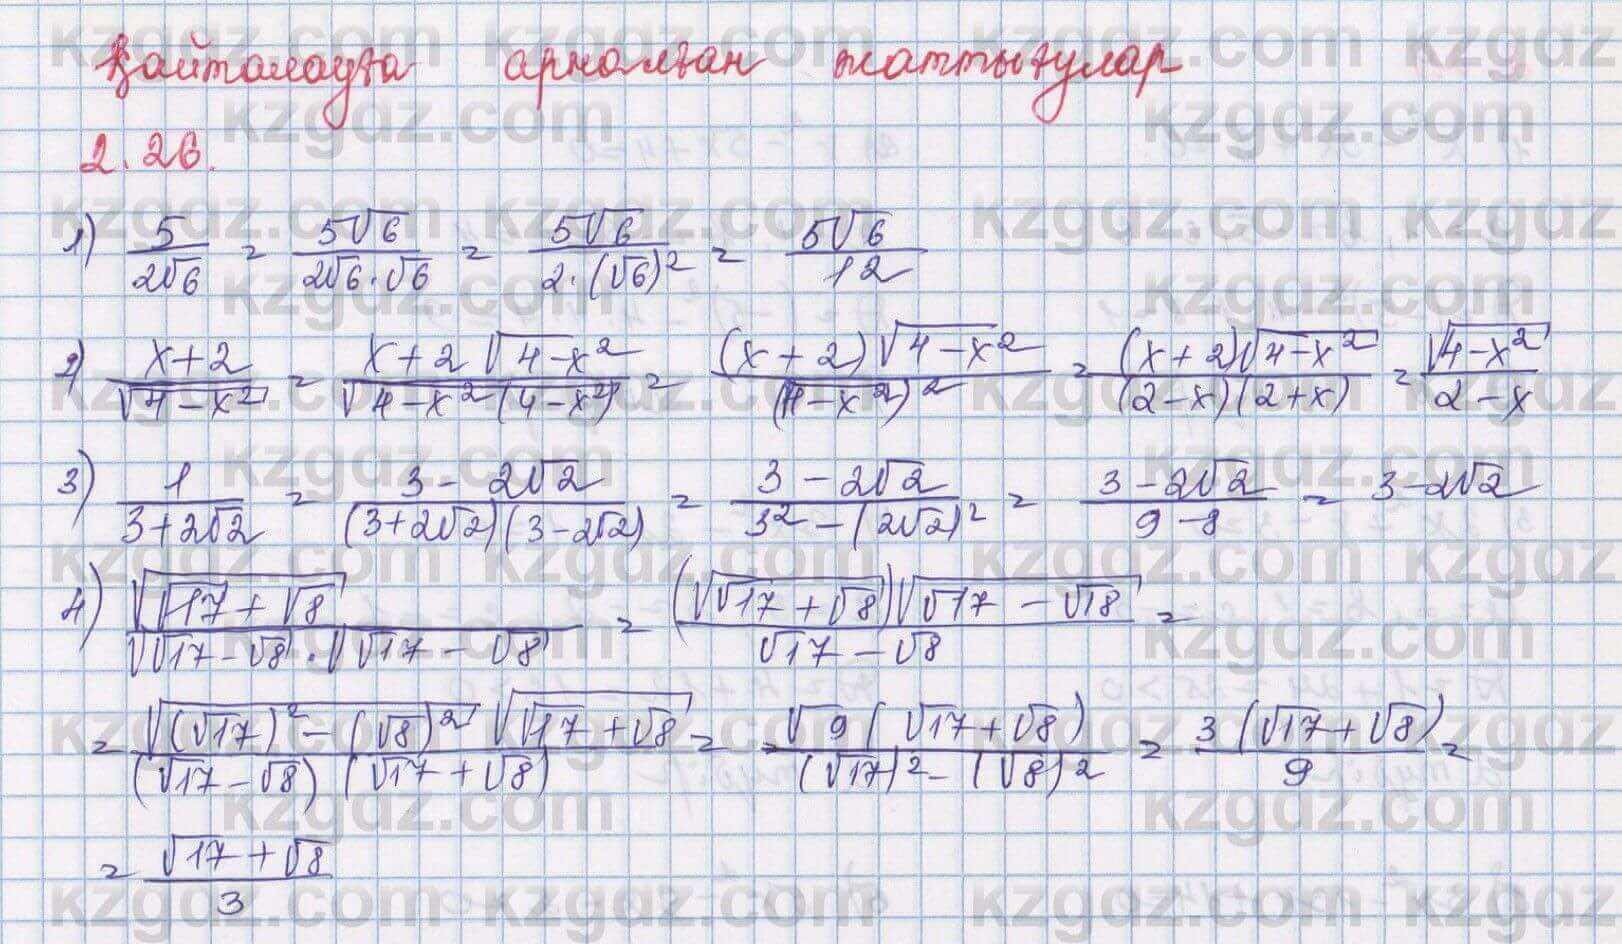 Қайталауға арналған жаттығулар
2.26.
1) 5/(2√6) = 5√6/(2√6·√6) = 5√6/(2·(√6)²) = 5√6/12
2) (x+2)/√(4-x²) = (x+2√(4-x²))/(√(4-x²)(4-x²)) = (x+2)√(4-x²)/(4-x²)² = (x+2)√(4-x²)/((2-x)(2+x)) = √(4-x²)/(2-x)
3) 1/(3+2√2) = (3-2√2)/((3+2√2)(3-2√2)) = (3-2√2)/(3²-(2√2)²) = (3-2√2)/(9-8) = 3-2√2
4) √(√17+√8)/(√(√17-√8)·√(√17-√8)) = (√(√17+√8))√(√17-√18)/(√17-√8) =
= √((√17)²-(√8)²)√(√17+√8)/((√17-√8)(√17+√8)) = = √9(√17+√8)/((√17)²-(√8)²) = 3(√17+√8)/9 =
= (√17+√8)/3
kzgdz.com